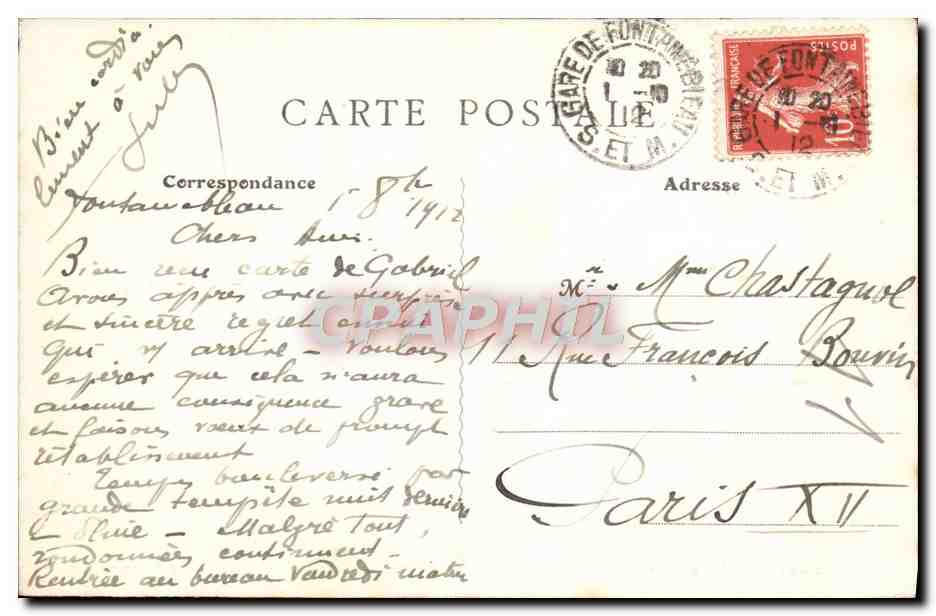 Bien cordia
lement à vous
CARTE POSTALE
GARE DE FONTAINEBLEAU
10 20
1 - 10
12
S. ET M.
POSTES
10
GARE DE FONTAINEBLEAU
10 20
12
ET M.
Correspondance
Adresse
Fontainebleau 1 8bre 1912
Chers Amis.
Bien reçu carte de Gabriel
Avons appris avec surprise
et sincère regret ennui
qui y arrive - voulons
espérer que cela n'aura
aucune conséquence grave
et faisons vœux de prompt
rétablissement
Temps bouleversé par
grande tempête nuit dernière
& Pluie - Malgré tout,
randonnées continuent -
Rentrée au bureau Vendredi matin
Mr & Mme Chastagnol
11 Rue François Bonvin
Paris XV
CRAPHIL